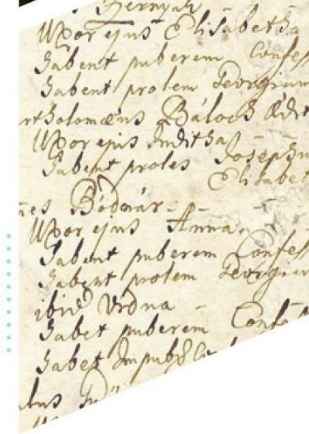 Hernyak
Uxor ejus Elisabetha
Habent puberem Confes
Habent prolem Georgium
rtholomæus Báloch Ædit
Uxor ejus Juditha
Habent proles Josephu
Elisabet
nes Bodnár
Uxor ejus Anna
Habent puberem Confess
Habent prolem Georgium
ibid Vidua
Habet puberem Confess
Habet Impub